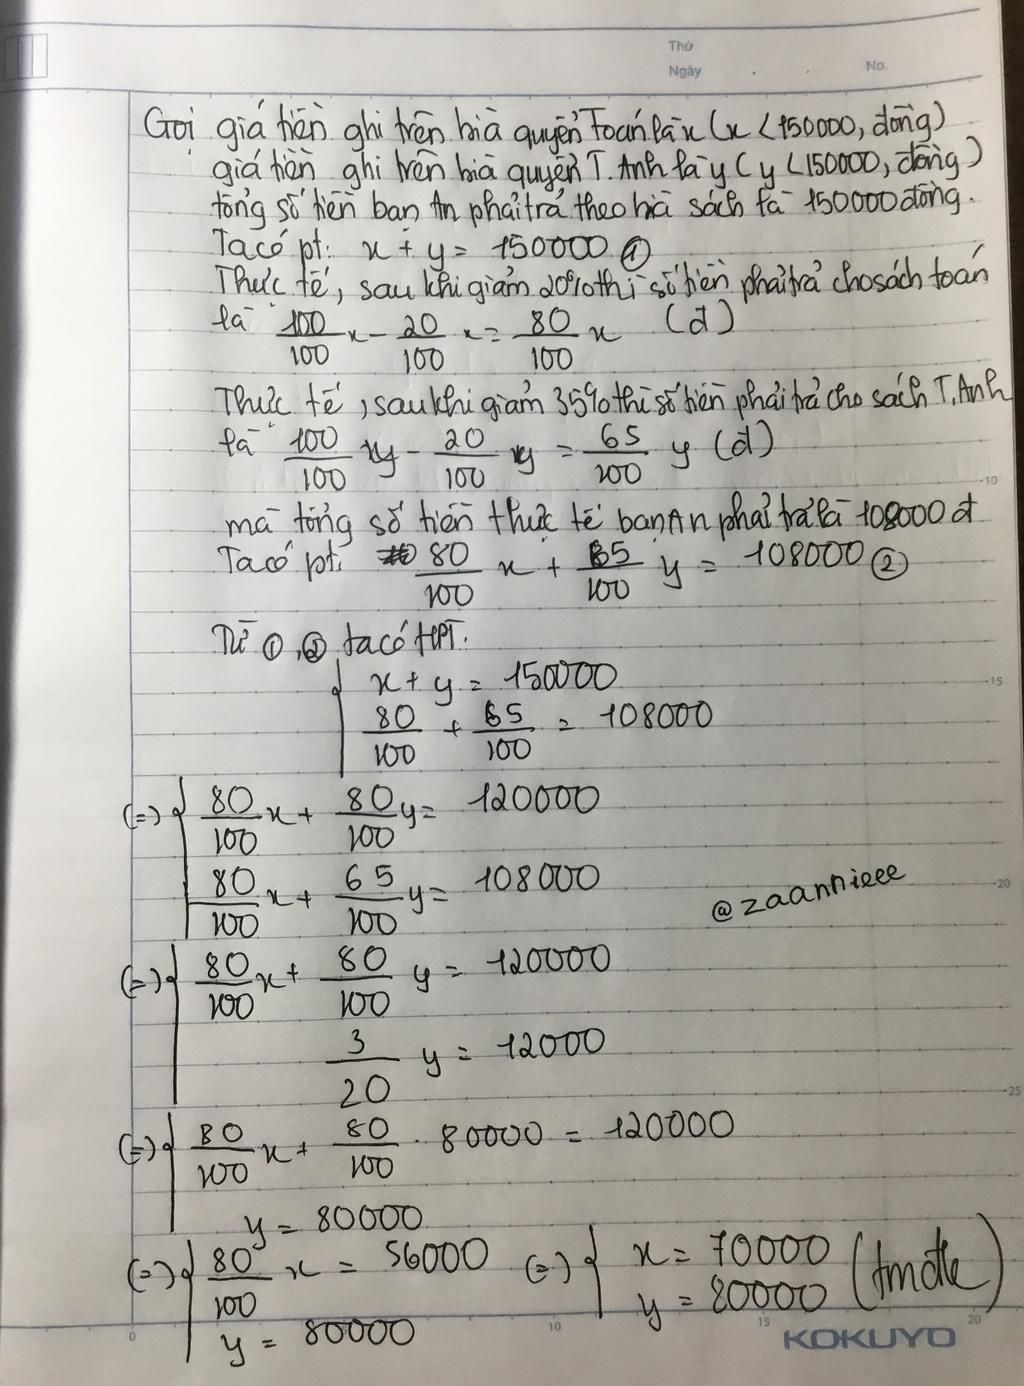 Thứ
Ngày . . No.
Gọi giá tiền ghi trên bìa quyển Toán là x (x < 150000, đồng)
giá tiền ghi trên bìa quyển T. Anh là y (y < 150000, đồng)
tổng số tiền bạn An phải trả theo bìa sách là 150000 đồng.
Ta có pt: x + y = 150000 ①
Thực tế, sau khi giảm 20% thì số tiền phải trả cho sách toán
là 100/100 x - 20/100 x = 80/100 x (đ)
Thực tế, sau khi giảm 35% thì số tiền phải trả cho sách T. Anh
là 100/100 y - 20/100 y = 65/100 y (đ)
mà tổng số tiền thực tế bạn An phải trả là 108000 đ
Ta có pt: 80/100 x + 65/100 y = 108000 ②
Từ ①, ② ta có HPT:
{ x + y = 150000
80/100 + 65/100 = 108000
(=) { 80/100 x + 80/100 y = 120000
80/100 x + 65/100 y = 108000
@zaannieee
(=) { 80/100 x + 80/100 y = 120000
3/20 y = 12000
(=) { 80/100 x + 80/100 . 80000 = 120000
y = 80000
(=) { 80/100 x = 56000 (=) { x = 70000 (tmđk)
y = 80000 y = 80000
10
15
20
25
0 10 15 20
KOKUYO